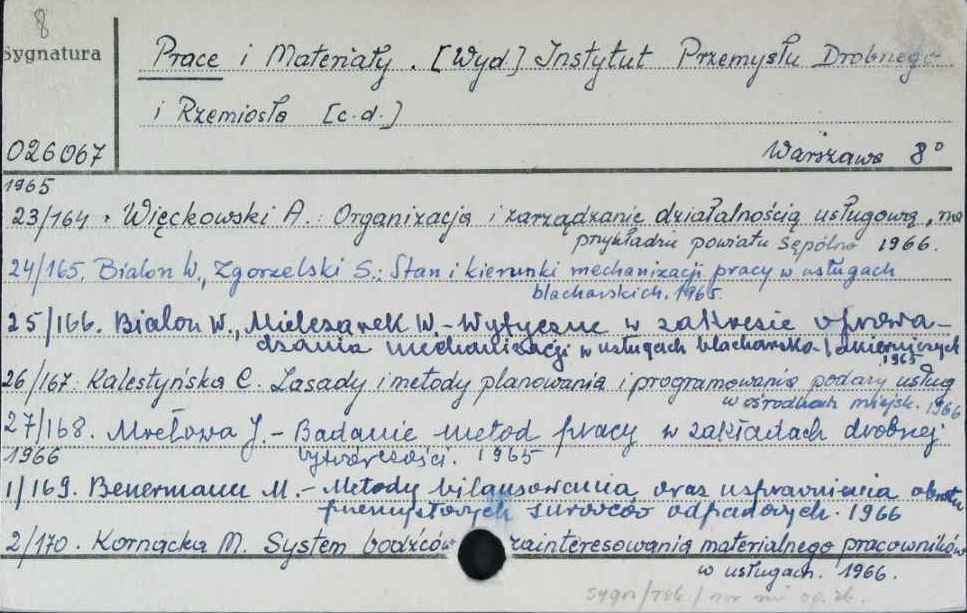 8
Sygnatura
Prace i Materiały. [Wyd] Instytut Przemysłu Drobnego
i Rzemiosła [c.d.]
026067
Warszawa 8°
1965
23/164. Więckowski A.: Organizacja i zarządzanie działalnością usługową, na
przykładzie powiatu Sępólno 1966.
24/165. Bialon W., Zgorzelski S.: Stan i kierunki mechanizacji pracy w usługach
blacharskich. 1965.
25/166. Bialon W., Mielczarek W. - Wytyczne w zakresie oprowa-
dzania mechanizacji w usługach blacharsko-
1965
26/167. Kalestyńska C. Zasady i metody planowania i programowania podaży usług
w ośrodkach miejsk. 1966
27/168. Mrełowa J. - Badanie metod pracy w zakładach drobnej
wytwórczości. 1965
1966
1/169. Benermann M. - Metody bilansowania oraz usprawnienia obrotu
przemysłowych surowców odpadowych. 1966
2/170. Kornacka M. System bodźców zainteresowania materialnego pracowników
w usługach. 1966.